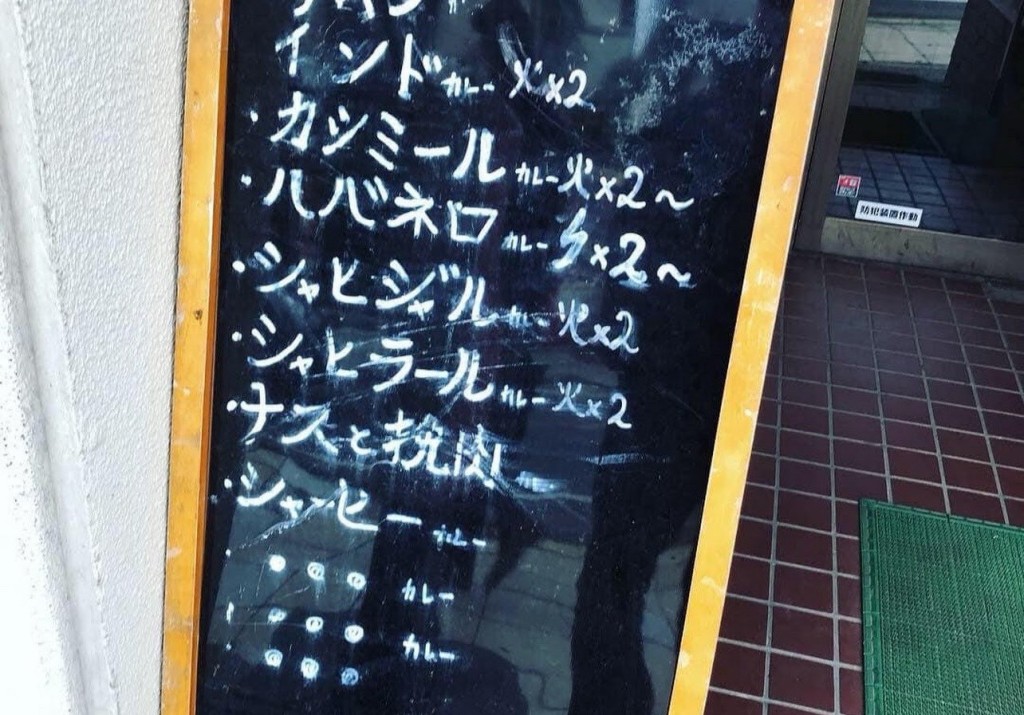 インドカレー 火×2
・カシミールカレー 火×2〜
・ハバネロカレー ×2〜
・シャヒジャルカレー 火×2
・シャヒラールカレー 火×2
・ナスと挽肉
・シャーヒーカレー
・●◎◎ カレー
・◎◎◎ カレー
◎◎◎
防犯装置作動